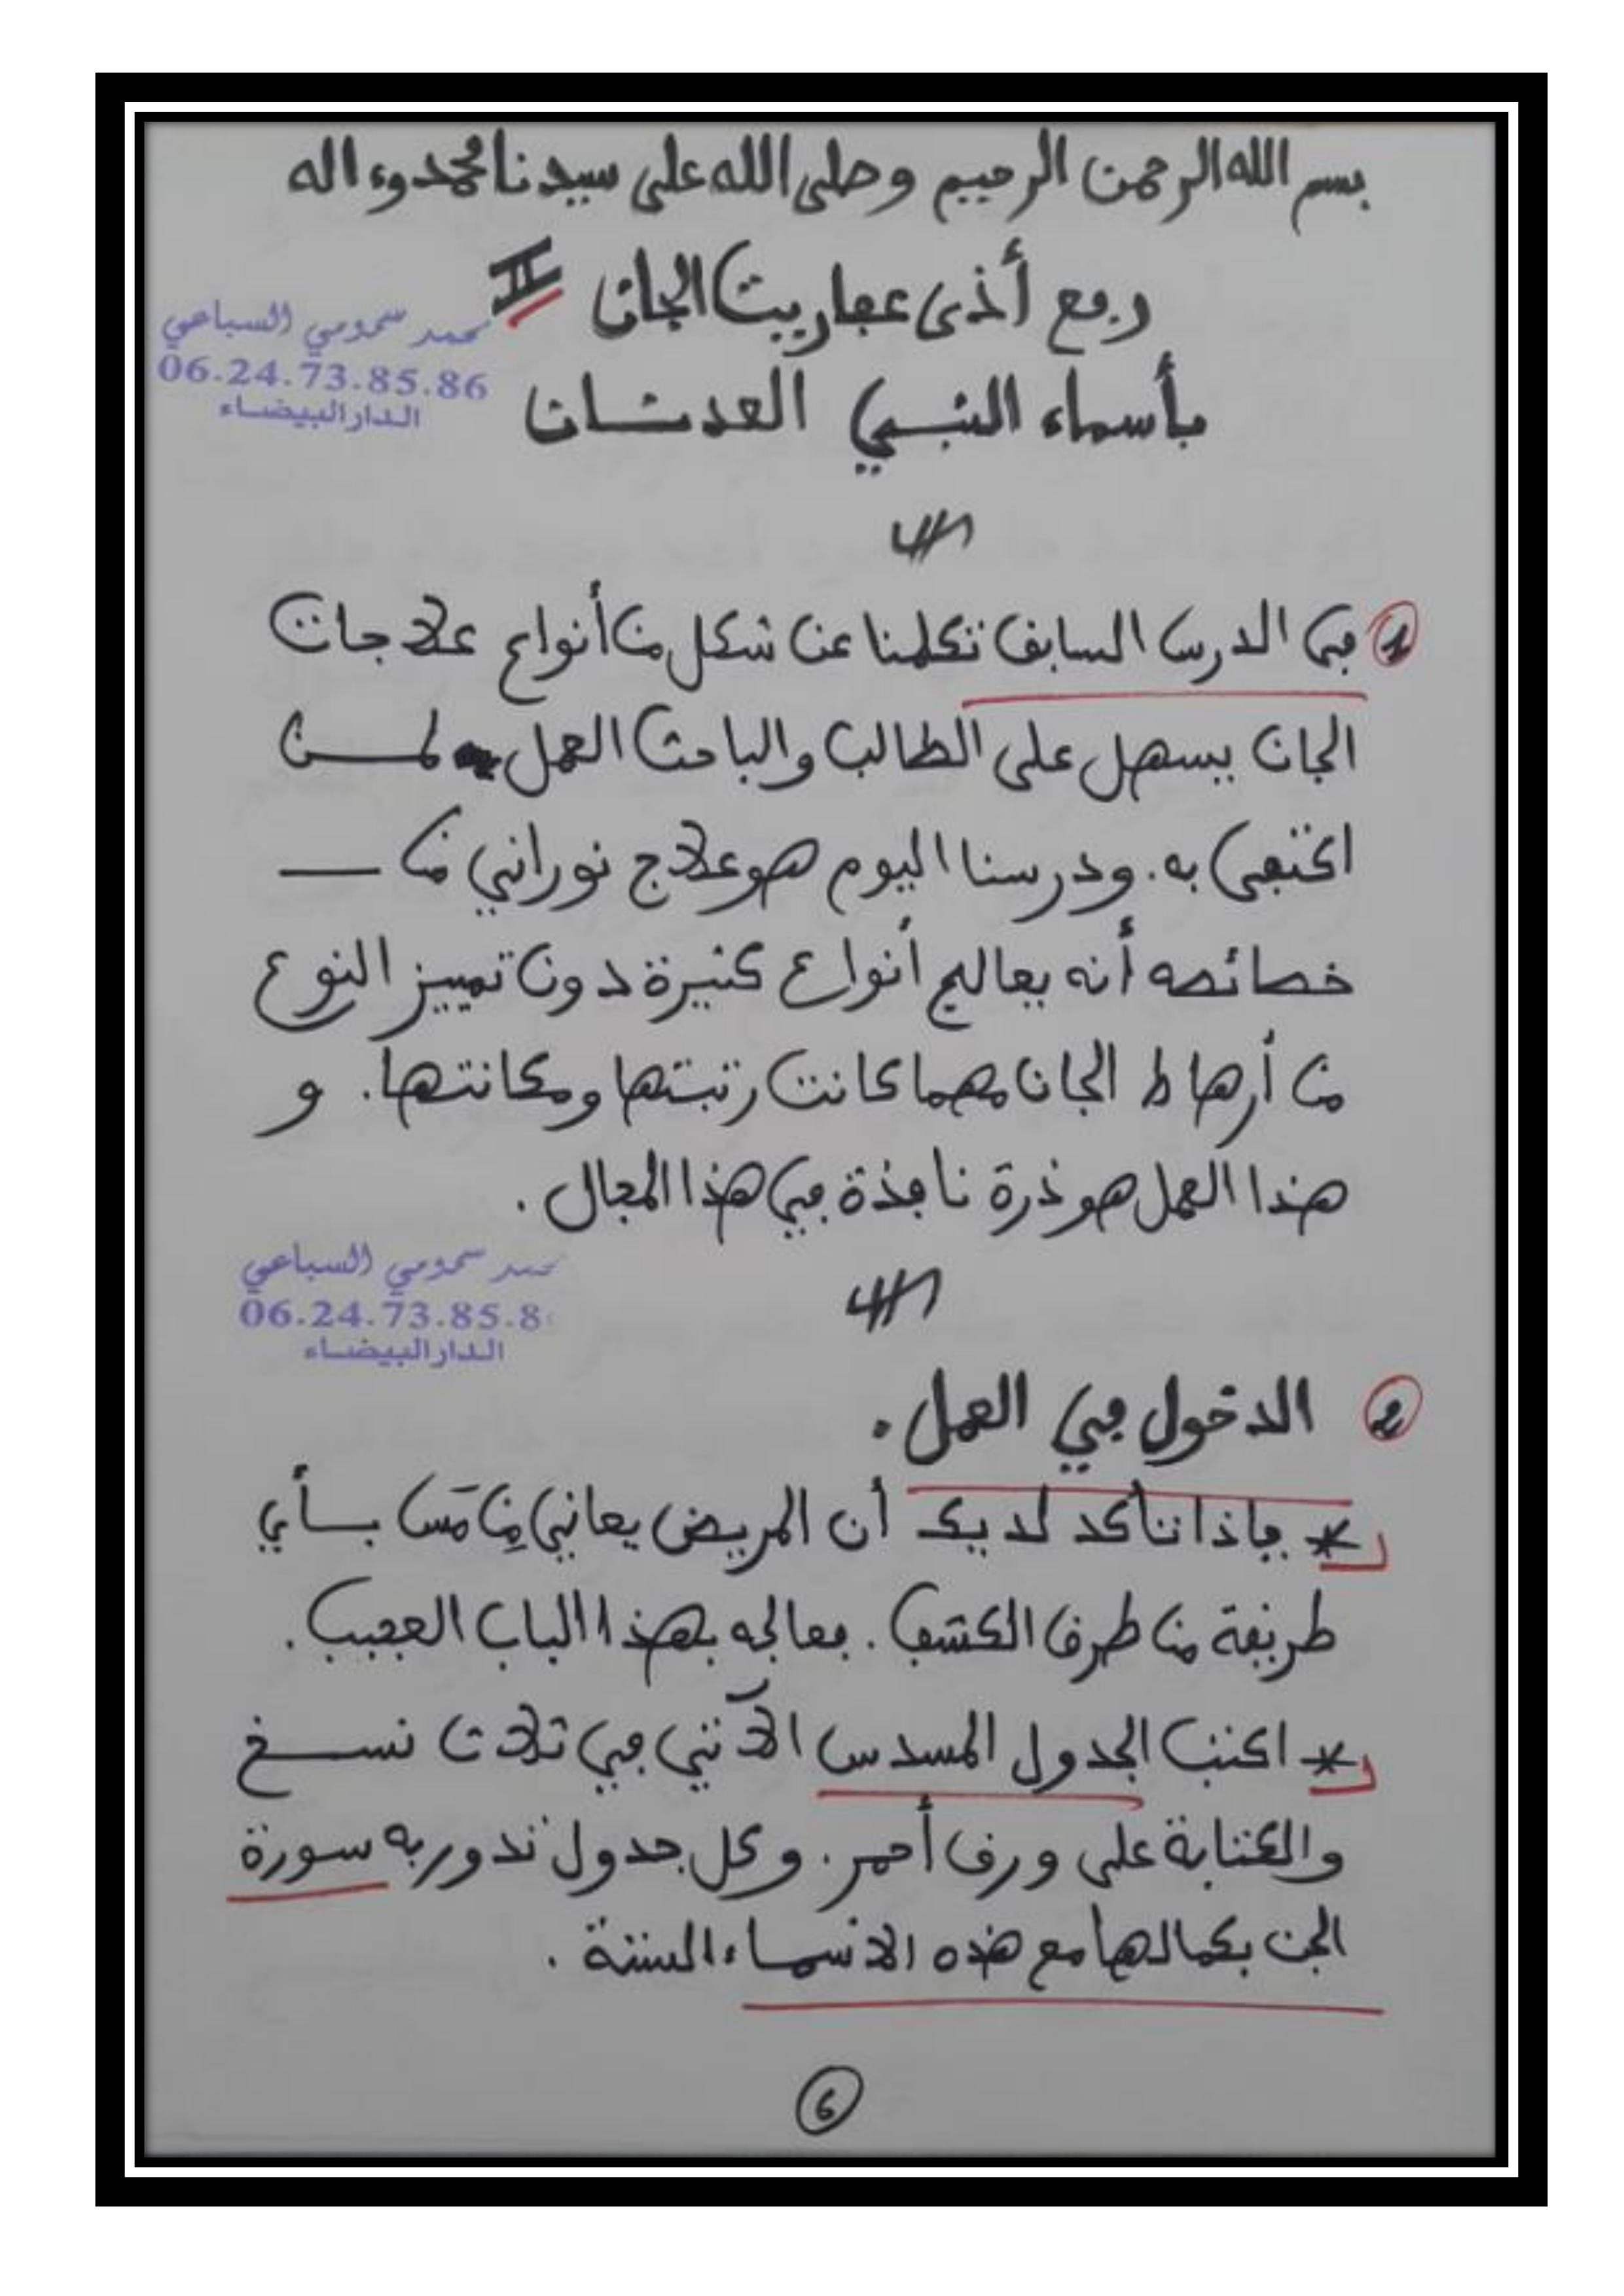 بسم الله الرحمن الرحيم وصلى الله على سيدنا محمد وءاله
رفع أذى عفاريت الجان II
محمد سحومي السباعي
06.24.73.85.86
الدار البيضاء
بأسماء النبي العدنان
1 في الدرس السابق تكلمنا عن شكل من أنواع علاجات
الجان يسهل على الطالب والباحث العمل لمن
اكتفى به. ودرسنا اليوم هو علاج نوراني من
خصائصه أنه يعالج أنواع كثيرة دون تمييز النوع
من أرهاط الجان مهما كانت رتبتها ومكانتها. و
هذا العمل هو ذرة نافذة في هذا المجال.
محمد سحومي السباعي
06.24.73.85.8
الدار البيضاء
2 الدخول في العمل.
* فإذا تأكد لديك أن المريض يعاني مِن مَس بأي
طريقة من طرق الكشف. فعالجه بهذا الباب العجيب.
* اكتب الجدول المسدس الآتي في ثلاث نسخ
والكتابة على ورق أحمر. وكل جدول تدور به سورة
الجن بكمالها مع هذه الأسماء الستة.
6